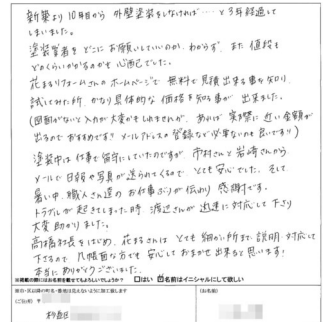 新築より10年目から 外壁塗装をしなければ…と3年経過して
しまいました。
塗装業者をどこにお願いしていいのか、わからず、また値段も
どのくらいかかるのかも心配でした。
花まるリフォームさんのホームページで 無料で見積出来る事を知り、
試してみた所、かなり具体的な価格を知る事が 出来ました。
(図面がないと入力が大変かもしれませんが、あれば 実際に近い金額が
出るのでおすすめです。メールアドレスの登録など必要ないのも良いです♪)
塗装中は仕事で留守にしていたのですが 市村さんと岩崎さんから、
メールで日報や写真が送られてくるので、とても安心でした。そして
暑い中、職人さん達のお仕事ぶりが伝わり 感謝です。
トラブルが起きてしまった時 渡辺さんが迅速に対応して下さり
大変助かりました。
高橋社長をはじめ、花まるさんは とても細かい所まで、説明・対応して
下さるので 几帳面な方でも 安心しておまかせ出来ると思います!
本当にありがとうございました。
※掲載の際にはお名前を載せてもよろしいでしょうか? □はい ☑名前はイニシャルにして欲しい
(ご住所) 〒
(お名前)
杉並区